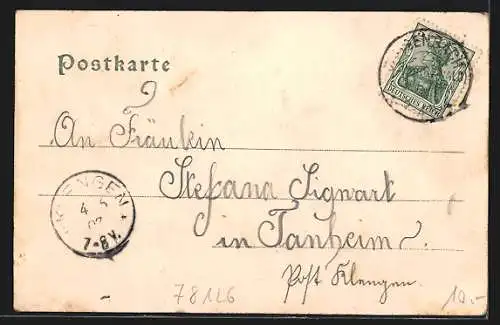 Postkarte
DEUTSCHES REICH
An Fräulein
Stefana Signart
in Tanheim.
Post Klengen.
KLENGEN
4 5
02
7-8 V.
78126
10.-